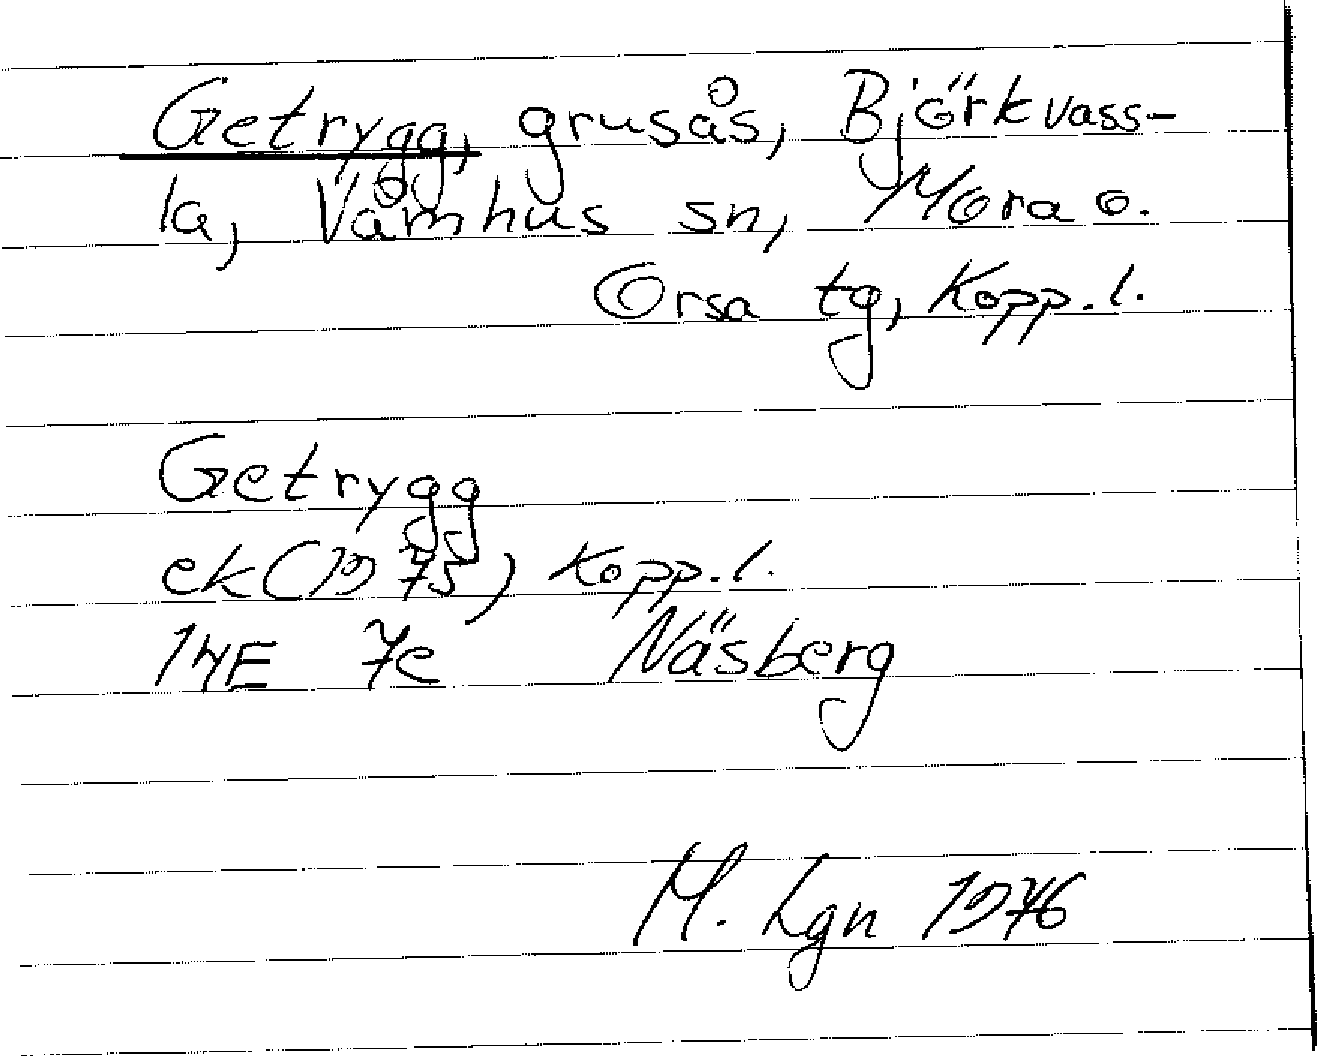 Getrygg, grusås, Björkvass-
la, Våmhus sn, Mora o.
Orsa tg, Kopp. l.
Getrygg
ek (1975) Kopp. l.
14E 7e Näsberg
M. Lgn 1976